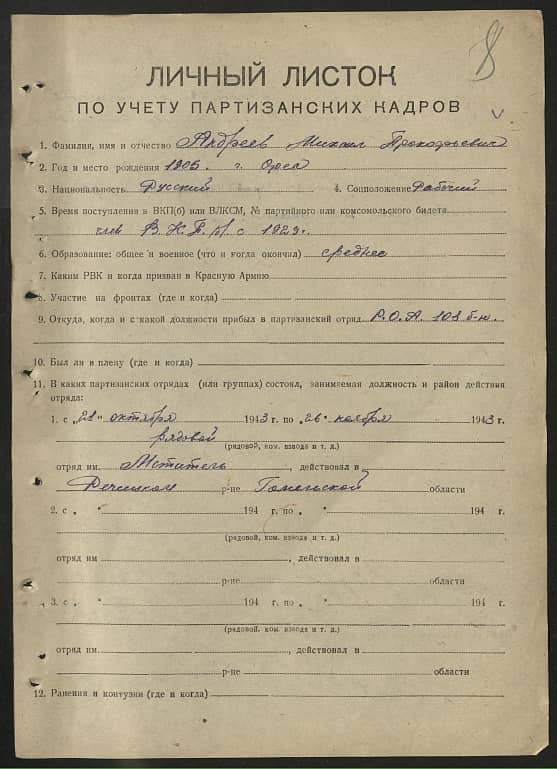 8
ЛИЧНЫЙ ЛИСТОК
ПО УЧЕТУ ПАРТИЗАНСКИХ КАДРОВ
1. Фамилия, имя и отчество Андреев Михаил Прокофьевич
2. Год и место рождения 1906 г.
3. Национальность Русский 4. Соцположение Рабочий
5. Время поступления в ВКП(б) или ВЛКСМ, № партийного или комсомольского билета
член В.К.П.(б) с 1929г.
6. Образование: общее и военное (что и когда окончил) среднее
7. Каким РВК и когда призван в Красную Армию
8. Участие на фронтах (где и когда)
9. Откуда, когда и с какой должности прибыл в партизанский отряд Р.О.А. 108 б-н.
10. Был ли в плену (где и когда)
11. В каких партизанских отрядах (или группах) состоял, занимаемая должность и район действия
отряда:
1. с „28“ октября 1943 г. по „26“ ноября 1943 г.
рядовой
(рядовой, ком. взвода и т. д.)
отряд им. Мститель, действовал в
Речицком р-не Гомельской области
2. с „ “ 194 г. по „ “ 194 г.
(рядовой, ком. взвода и т. д.)
отряд им, действовал в
р-не области
3. с „ “ 194 г. по „ “ 194 г.
(рядовой, ком. взвода и т. д.)
отряд им., действовал в
р-не области
12. Ранения и контузии (где и когда)